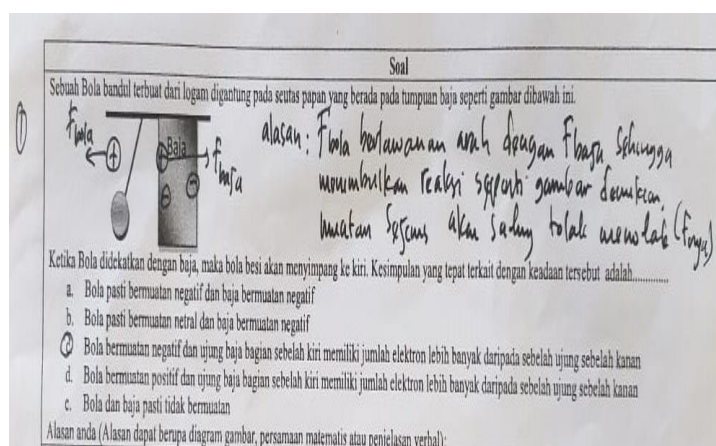 Soal
Sebuah Bola bandul terbuat dari logam digantung pada seutas papan yang berada pada tumpuan baja seperti gambar dibawah ini.
1
Fbola
+
Baja
+
fbaja
-
-
alasan : Fbola berlawanan arah dengan Fbaja sehingga
menimbulkan reaksi seperti gambar demikian,
muatan sejenis akan saling tolak menolak (Fnya)
Ketika Bola didekatkan dengan baja, maka bola besi akan menyimpang ke kiri. Kesimpulan yang tepat terkait dengan keadaan tersebut adalah.............
a. Bola pasti bermuatan negatif dan baja bermuatan negatif
b. Bola pasti bermuatan netral dan baja bermuatan negatif
c Bola bermuatan negatif dan ujung baja bagian sebelah kiri memiliki jumlah elektron lebih banyak daripada sebelah ujung sebelah kanan
d. Bola bermuatan positif dan ujung baja bagian sebelah kiri memiliki jumlah elektron lebih banyak daripada sebelah ujung sebelah kanan
e. Bola dan baja pasti tidak bermuatan
Alasan anda (Alasan dapat berupa diagram gambar, persamaan matematis atau penjelasan verbal):